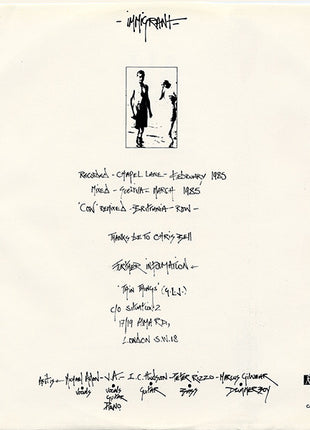 - IMMIGRANT -
RECORDED - CHAPEL LANE - FEBRUARY 1985
MIXED - GENEVA - MARCH 1985
'CON' REMIXED - BRITTANIA - ROW -
THANKS BE TO CHRIS BELL
FURTHER INFORMATION -
'THIN THINGS' (G.L.I.)
C/O SITUATION 2
17/19 ALMA RD,
LONDON S.W.18
ARTISTS - MICHAEL ALLEN - V.A. - I.C. HUDSON - PETER RIZZO - MARCUS GILVEAR
VOCALS VOCALS GUITAR BASS DRUMMER BOY
GUITAR
PIANO